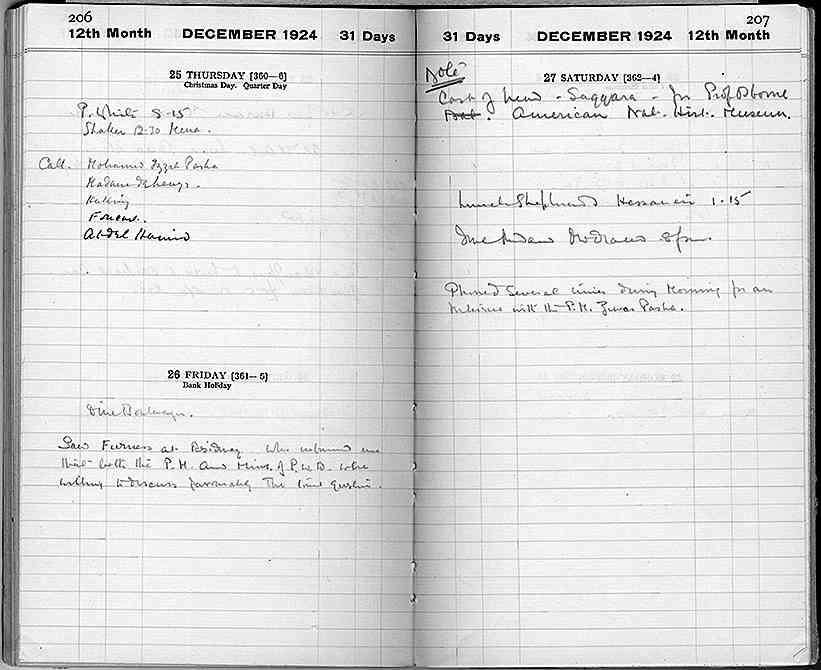 206
12th Month DECEMBER 1924 31 Days
25 THURSDAY [360—6]
Christmas Day. Quarter Day
P. White 8-15
Shaker 12-30 Mena.
Call. Mohamed Izzet Pasha
Madame
Abdel Hamid
26 FRIDAY [361—5]
Bank Holiday
Dine
Saw Furness at Residency who informed me
that both the P.M. and Mins. of P.W.D. were
willing to discuss favourably the
207
31 Days DECEMBER 1924 12th Month
Note
27 SATURDAY [362—4]
Cast of head - Saqqara - for Prof Osborne
American Nat. Hist. Museum.
Lunch Shepheards Hassanein 1.15
8 pm.
Phoned several times during morning for an
interview with the P.M. Ziwar Pasha.